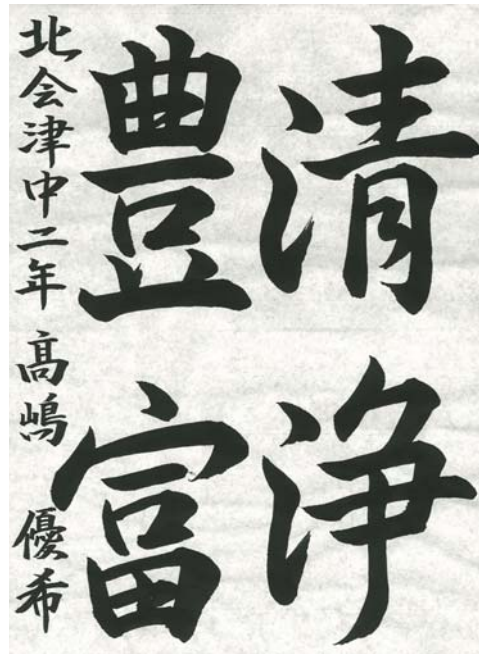 清浄
豊富
北会津中二年 髙嶋 優希